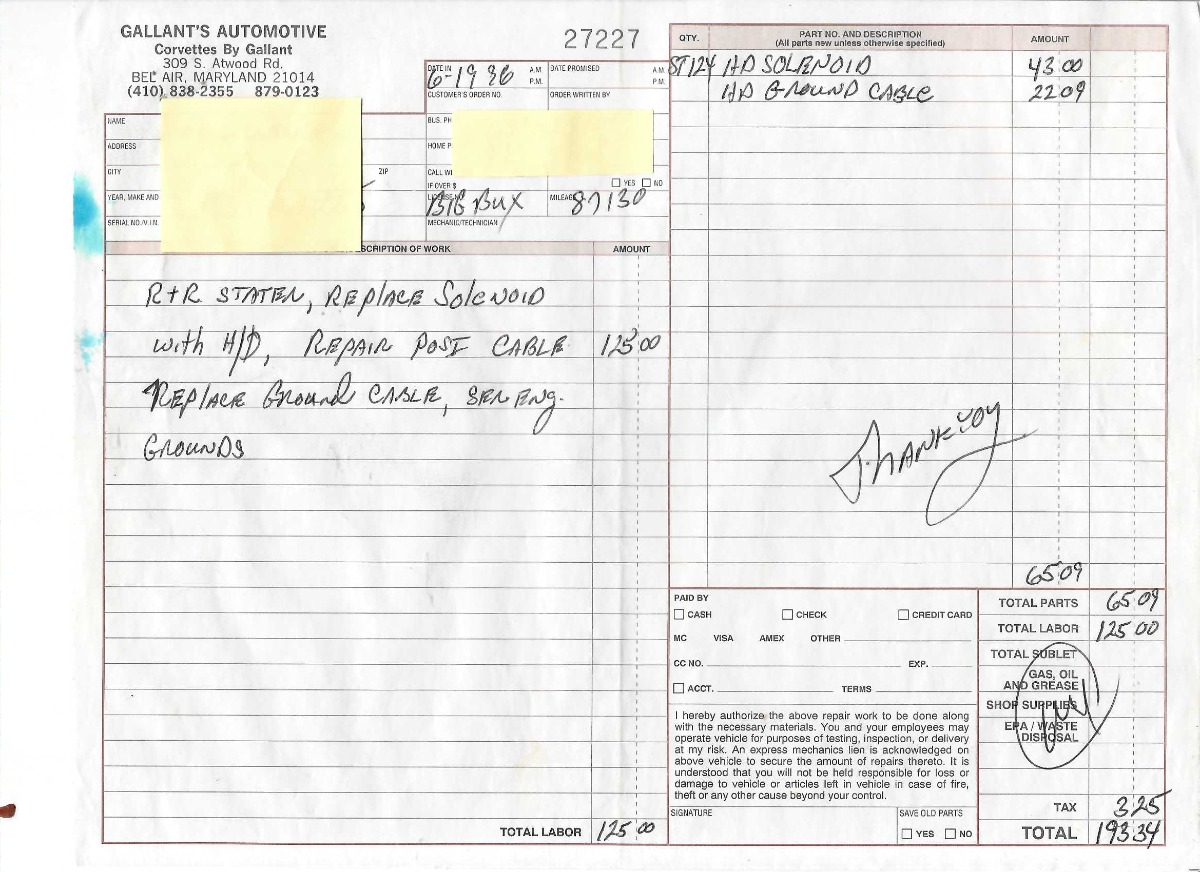 GALLANT'S AUTOMOTIVE
Corvettes By Gallant
309 S. Atwood Rd.
BEL AIR, MARYLAND 21014
(410) 838-2355 879-0123
27227
DATE IN 6-19 96 A.M. P.M.
DATE PROMISED A.M. P.M.
CUSTOMER'S ORDER NO.
ORDER WRITTEN BY
NAME
BUS. PH
ADDRESS
HOME P
CITY
ZIP
CALL W
IF OVER $
YES NO
YEAR, MAKE AND
BIG BUX
MILEAGE 87130
SERIAL NO./V.I.N.
MECHANIC/TECHNICIAN
SCRIPTION OF WORK AMOUNT
R+R STATER, REPlACE SolENOID
with H/D, REPAIR POST CABLE 125 00
REPlACE GRound CABLE, SER ENg.
GROUNDS
TOTAL LABOR 125 00
QTY. PART NO. AND DESCRIPTION AMOUNT
(All parts new unless otherwise specified)
ST124 HD SOLENOID 43 00
HD GROUND CABLE 22 09
THANK YOU
65 09
PAID BY
CASH CHECK CREDIT CARD
MC VISA AMEX OTHER
CC NO. EXP.
ACCT. TERMS
I hereby authorize the above repair work to be done along
with the necessary materials. You and your employees may
operate vehicle for purposes of testing, inspection, or delivery
at my risk. An express mechanics lien is acknowledged on
above vehicle to secure the amount of repairs thereto. It is
understood that you will not be held responsible for loss or
damage to vehicle or articles left in vehicle in case of fire,
theft or any other cause beyond your control.
SIGNATURE
SAVE OLD PARTS
YES NO
TOTAL PARTS 65 09
TOTAL LABOR 125 00
TOTAL SUBLET
GAS, OIL
AND GREASE
SHOP SUPPLIES
EPA / WASTE
DISPOSAL
TAX 3 25
TOTAL 193 34